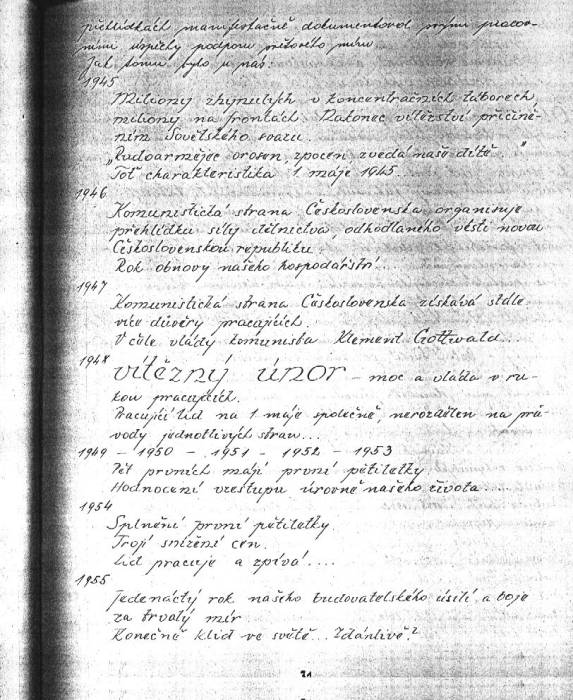 přehlídkách manifestačně dokumentoval svými pracov-
ními úspěchy podporu světového míru.
Jak tomu bylo u nás:
1945
Miliony zhynulých v koncentračních táborech,
miliony na frontách. Nakonec vítězství přičině-
ním Sovětského svazu.
„Rudoarmějec orosen, zpocen zvedá naše dítě..."
Toť charakteristika 1 máje 1945...
1946
Komunistická strana Československa organisuje
přehlídku síly dělnictva, odhodlaného vésti novou
Československou republiku.
Rok obnovy našeho hospodářství...
1947
Komunistická strana Československa získává stále
více důvěry pracujících.
V čele vlády komunista Klement Gottwald...
1948
vítězný únor – moc a vláda v ru-
kou pracujících.
Pracující lid na 1 máje společně, nerozdělen na prů-
vody jednotlivých stran...
1949 – 1950 – 1951 – 1952 – 1953
Pět prvních májů první pětiletky.
Hodnocení vzestupu úrovně našeho života....
1954
Splnění první pětiletky.
Trojí snížení cen.
Lid pracuje a zpívá....
1955
Jedenáctý rok našeho budovatelského úsilí a boje
za trvalý mír.
Konečně klid ve světě... Zdánlivě?